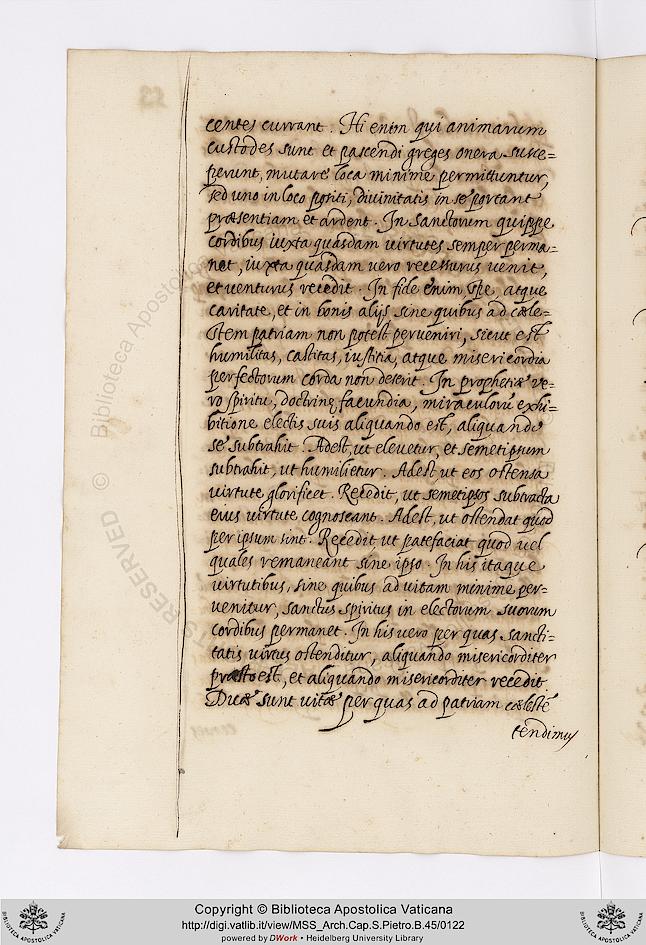 centes currant. Hi enim qui animarum
custodes sunt et pascendi greges onera susce=
perunt, mutare loca minime permittuntur,
sed uno in loco positi, divinitatis in se portant
præsentiam et ardent. In sanctorum quippe
cordibus iuxta quasdam virtutes semper perma=
net, iuxta quasdam vero recessurus venit,
et venturus recedit. In fide enim spe atque
caritate, et in bonis alijs sine quibus ad cæle=
stem patriam non potest perveniri, sicut est
humilitas, castitas, iustitia, atque misericordia
perfectorum corda non deserit. In prophetiæ ve=
ro spiritu, doctrinę facundia, miraculorū exhi=
bitione electis suis aliquando est, aliquando
se subtrahit. Adest, ut elevetur, et semetipsum
subtrahit, ut humilietur. Adest ut eos ostensa
virtute glorificet. Recedit, ut semetipsos subtracta
eius virtute cognoscant. Adest, ut ostendat quod
per ipsum sint. Recedit ut patefaciat quod vel
quales remaneant sine ipso. In his itaque
virtutibus, sine quibus ad vitam minime per=
venitur, sanctus spiritus in electorum suorum
cordibus permanet. In his vero per quas sancti=
tatis virtus ostenditur, aliquando misericorditer
præsto est, et aliquando misericorditer recedit
Duæ sunt vitæ per quas ad patriam cælestē
tendimus
Copyright © Biblioteca Apostolica Vaticana
http://digi.vatlib.it/view/MSS_Arch.Cap.S.Pietro.B.45/0122
powered by DWork • Heidelberg University Library